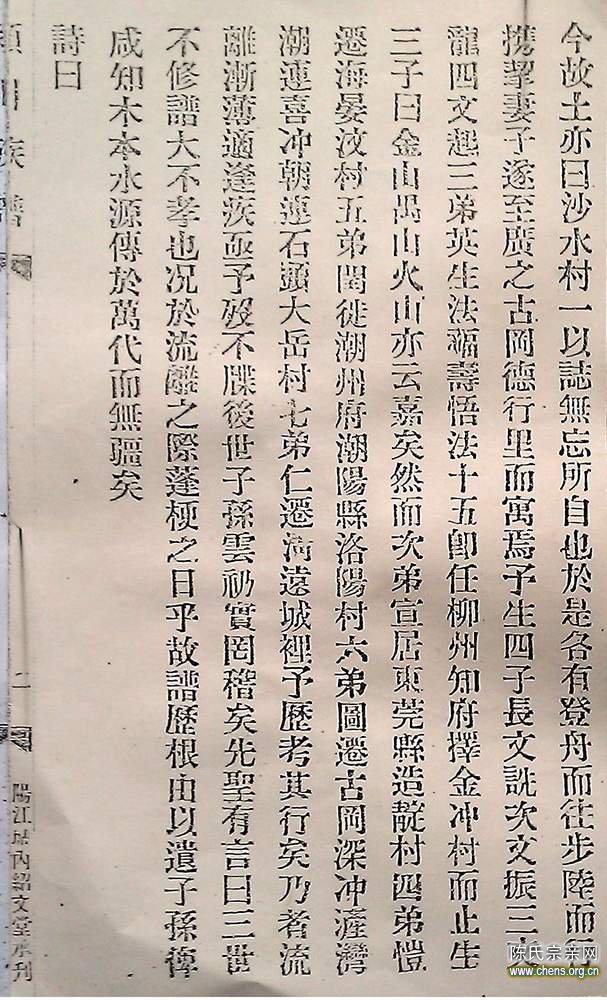 今故土亦曰沙水村一以誌無忘所自也於是各有登舟而往步陸而行
携挈妻子遂至廣之古岡德行里而寓焉予生四子長文詵次文振三文
龍四文起三弟英生法福壽悟法十五卽任柳州知府擇金冲村而止生
三子曰金山禺山火山亦云嘉矣然而次弟宣居東莞縣造靛村四弟愷
遷海晏汶村五弟閏徙潮州府潮陽縣洛陽村六弟圖遷古岡深冲滘灣
潮連喜冲朝連石頭大岳村七弟仁遷淸遠城裡予歷考其行矣乃者流
離漸薄適逢疾亟予歿不牒後世子孫雲礽實罔稽矣先聖有言曰三世
不修譜大不孝也况於流離之際蓬梗之日乎故譜歷根由以遺子孫俾
咸知木本水源傳於萬代而無疆矣
詩曰
族譜
二
陽江城內紹文堂承刊
陈氏宗亲网
www.chens.org.cn